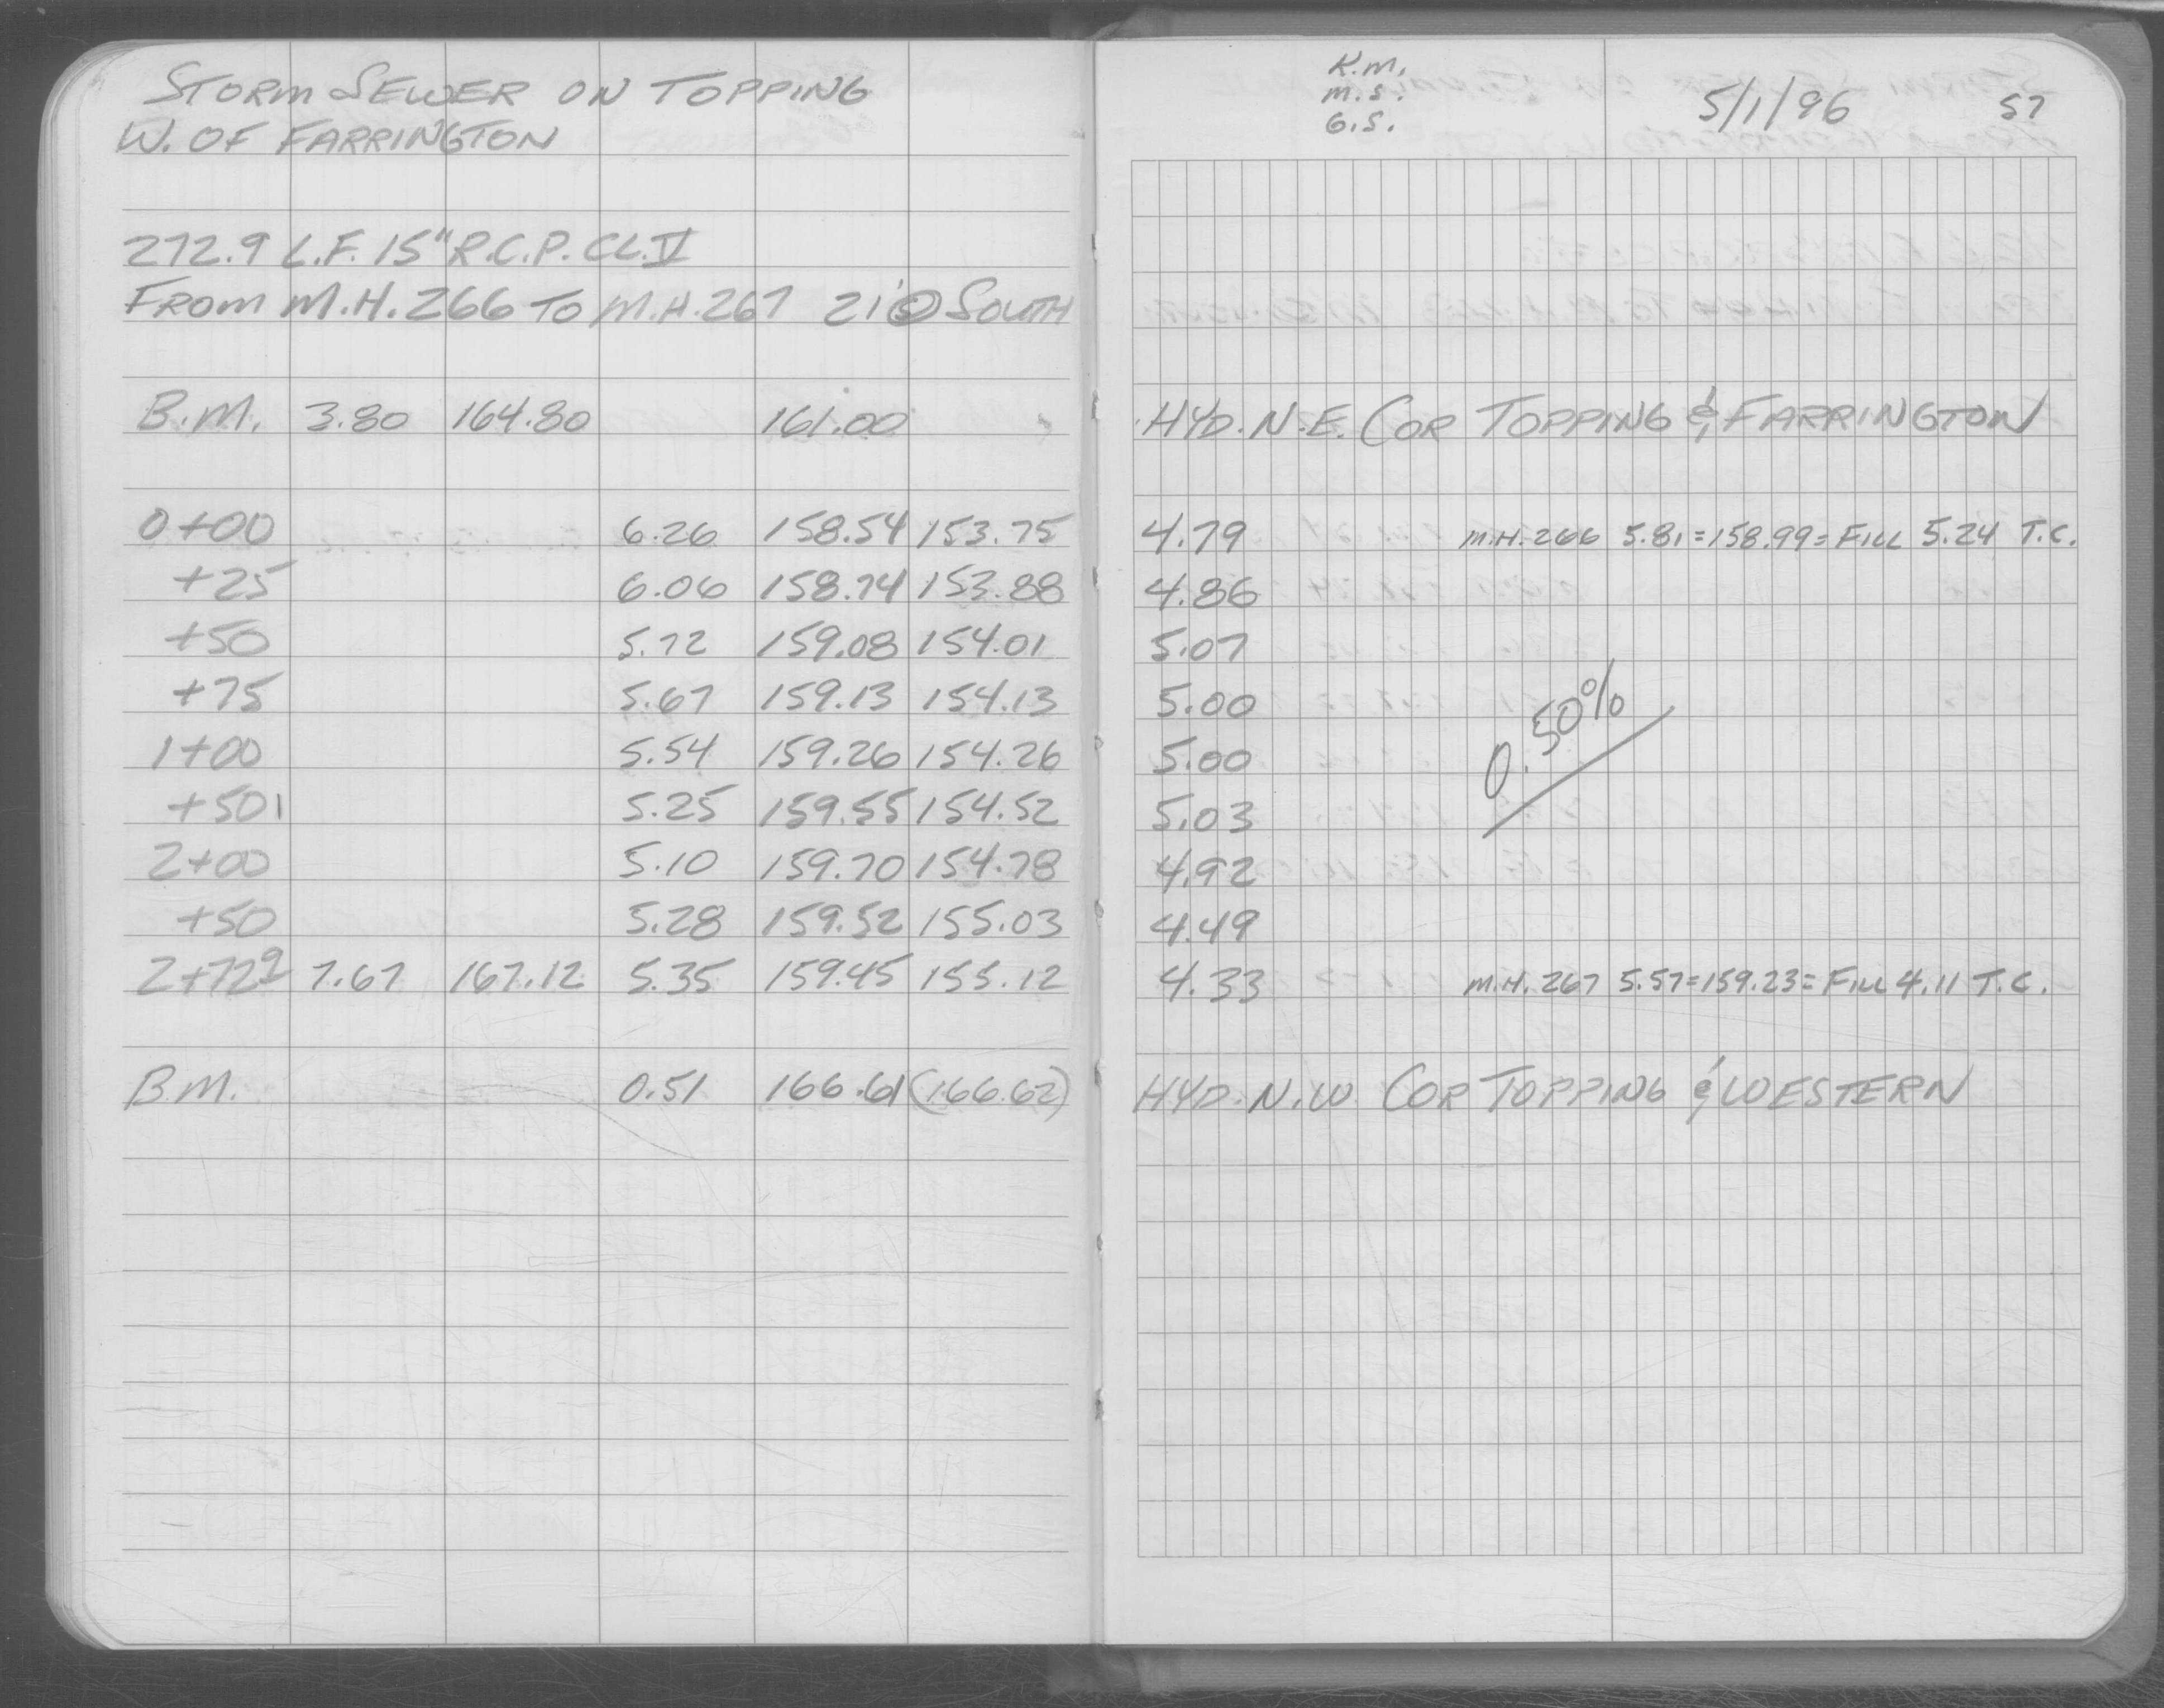 STORM SEWER ON TOPPING
W. OF FARRINGTON
272.9 L.F. 15" R.C.P. CL. V
FROM M.H. 266 TO M.H. 267 21' @ SOUTH
B.M. 3.80 164.80 161.00
0+00 6.26 158.54 153.75
+25 6.06 158.74 153.88
+50 5.72 159.08 154.01
+75 5.67 159.13 154.13
1+00 5.54 159.26 154.26
+50 5.25 159.55 154.52
2+00 5.10 159.70 154.78
+50 5.28 159.52 155.03
2+72⁹ 7.67 167.12 5.35 159.45 155.12
B.M. 0.51 166.61 (166.62)
K.M.
M.S.
G.S.
5/1/96 57
HYD. N.E. COR TOPPING & FARRINGTON
4.79 M.H. 266 5.81=158.99=FILL 5.24 T.C.
4.86
5.07
5.00
5.00
0.50%
5.03
4.92
4.49
4.33 M.H. 267 5.57=159.23=FILL 4.11 T.C.
HYD. N.W. COR TOPPING & WESTERN